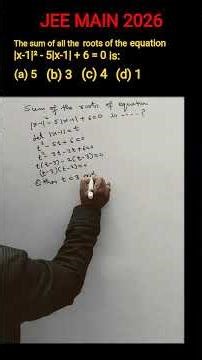 JEE MAIN 2026
The sum of all the roots of the equation
|x-1|² - 5|x-1| + 6 = 0 is:
(a) 5 (b) 3 (c) 4 (d) 1
Sum of the roots of equation
|x-1|² - 5|x-1| + 6 = 0 is ----- ?
let |x-1| = t
t² - 5t + 6 = 0
t² - 3t - 2t + 6 = 0
t(t-3) - 2(t-3) = 0
(t-3)(t-2) = 0
Either t = 3